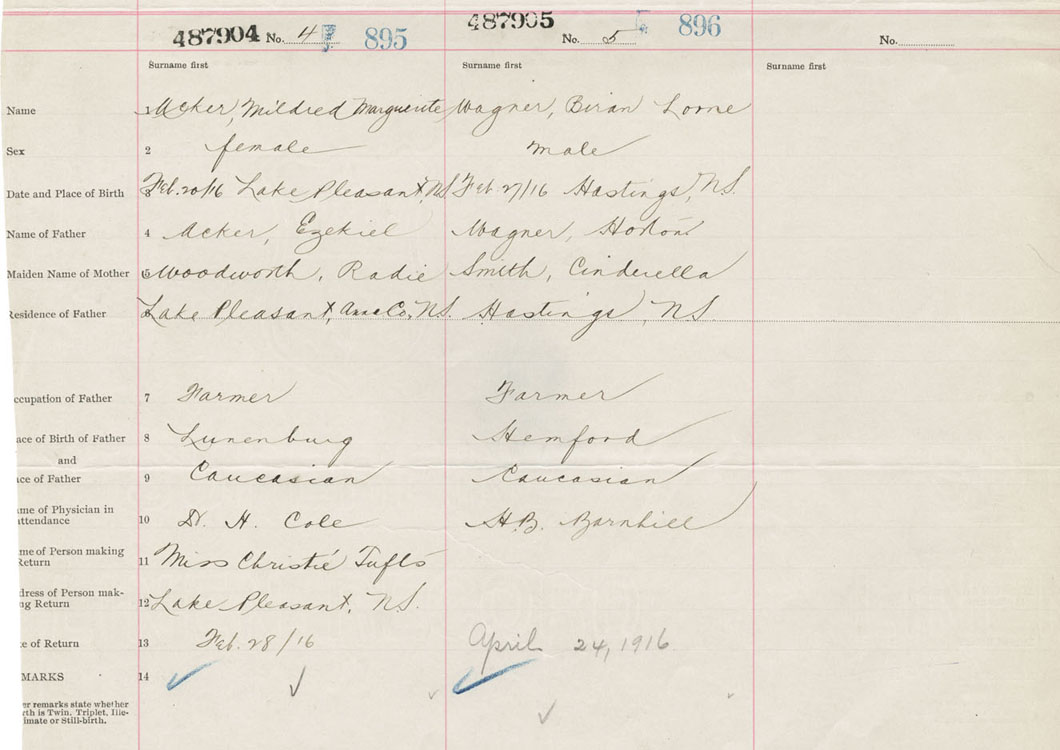 487904 No. 4 895 487905 No. 5 896 No.
Surname first Surname first Surname first
Name 1 Acker, Mildred Marguerite Wagner, Biran Lorne
Sex 2 female male
Date and Place of Birth 3 Feb. 20/16 Lake Pleasant, N.S. Feb 27/16 Hastings, N.S.
Name of Father 4 Acker, Ezekiel Wagner,
Maiden Name of Mother 5 Woodworth, Radie Smith, Cinderella
Residence of Father 6 Lake Pleasant, Anna Co, N.S. Hastings, N.S.
ccupation of Father 7 Farmer Farmer
ace of Birth of Father 8 Lunenburg Hemford
and
ace of Father 9 Caucasian Caucasian
ame of Physician in
attendance 10 Dr. H. Cole H.B. Barnhill
me of Person making
Return 11 Miss Christie Tufts
dress of Person mak-
ng Return 12 Lake Pleasant, N.S.
te of Return 13 Feb. 28/16 April 24, 1916
MARKS 14
er remarks state whether
rth is Twin, Triplet, Ille-
imate or Still-birth.